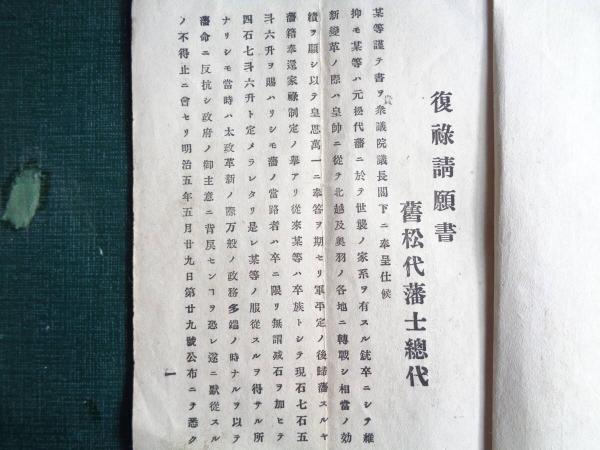 復祿請願書
舊松代藩士總代
某等謹テ書ヲ貴衆議院議長閣下ニ奉呈仕候
抑モ某等ハ元松代藩ニ於テ世襲ノ家系ヲ有スル銃卒ニシテ維
新變革ノ際ハ皇帥ニ從ヲ北越及奥羽ノ各地ニ轉戰シ相當ノ効
績ヲ願シ以テ皇恩萬一ニ奉答ヲ期セリ軍平定ノ後歸藩スルヤ
藩籍奉還家祿制定ノ擧アリ從來某等ハ卒族トシテ現石七石五
斗六升ヲ賜ハリシモ藩ノ當路者ハ卒ニ限リ無謂减石ヲ加ヒテ
四石七斗六升ト定メラレタリ是レ某等ノ服從スルヲ得サル所
ナリシモ當時ハ太政革新ノ際万般ノ政務多端ノ時ナルヲ以テ
藩命ニ反抗シ政府ノ御主意ニ背戻センヿヲ恐レ遂ニ默從スル
ノ不得止ニ會セリ明治五年五月廿九日第廿九號公布ニテ悉ク
一